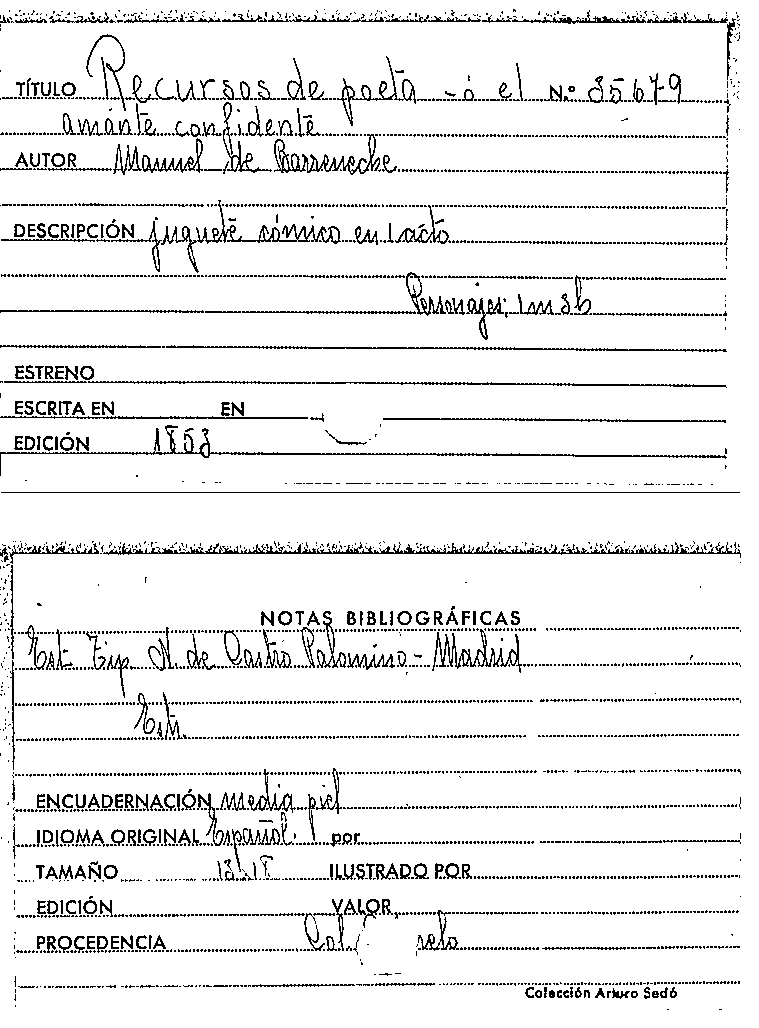 TÍTULO Recursos de poeta - ó el N.º 35679
amante confidente
AUTOR Manuel de Barreneche
DESCRIPCIÓN juguete cómico en 1 acto
Personajes; 1m 3h
ESTRENO
ESCRITA EN EN
EDICIÓN 1853
NOTAS BIBLIOGRÁFICAS
Est. Tip. A. de Castro Palomino - Madrid
Estr.
ENCUADERNACIÓN media piel
IDIOMA ORIGINAL Español. por
TAMAÑO 13x18 ILUSTRADO POR
EDICIÓN VALOR,
PROCEDENCIA Col.
Colección Arturo Sedó